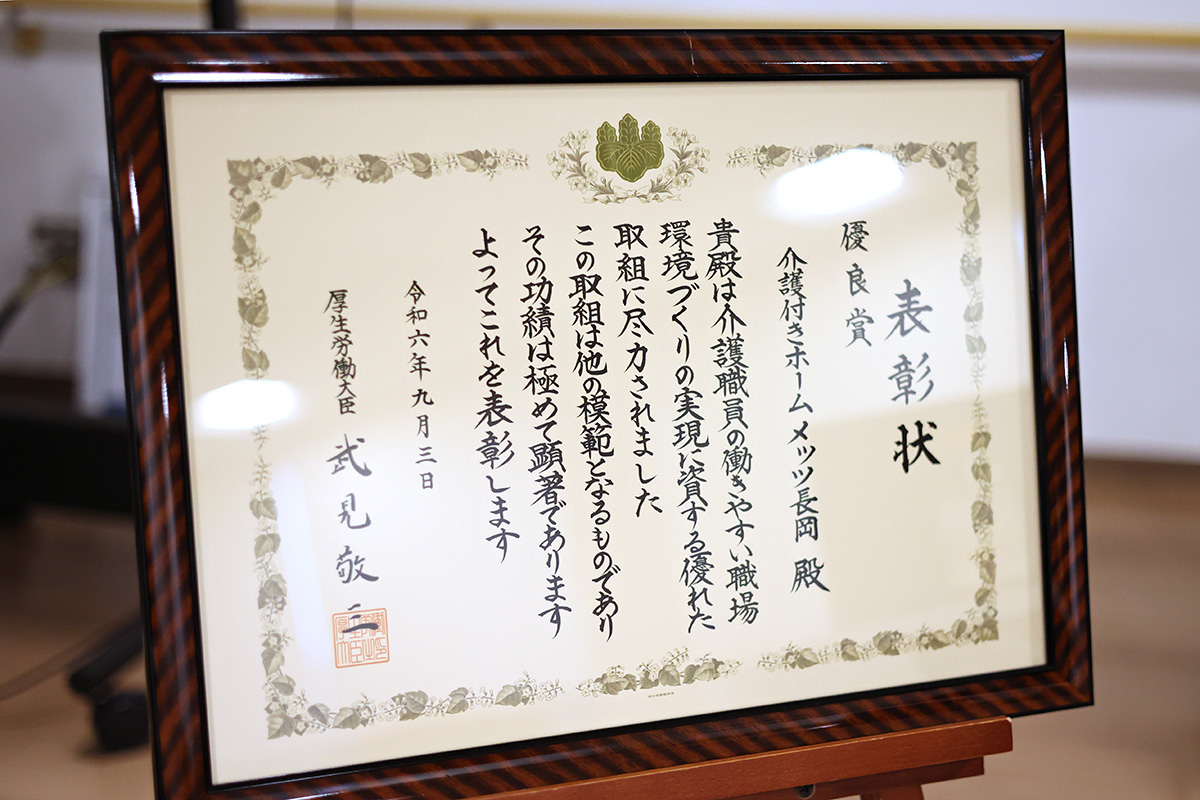 表彰状
優良賞
介護付きホームメッツ長岡 殿
貴殿は介護職員の働きやすい職場
環境づくりの実現に資する優れた
取組に尽力されました
この取組は他の模範となるものであり
その功績は極めて顕著であります
よってこれを表彰します
令和六年九月三日
厚生労働大臣 武見敬三